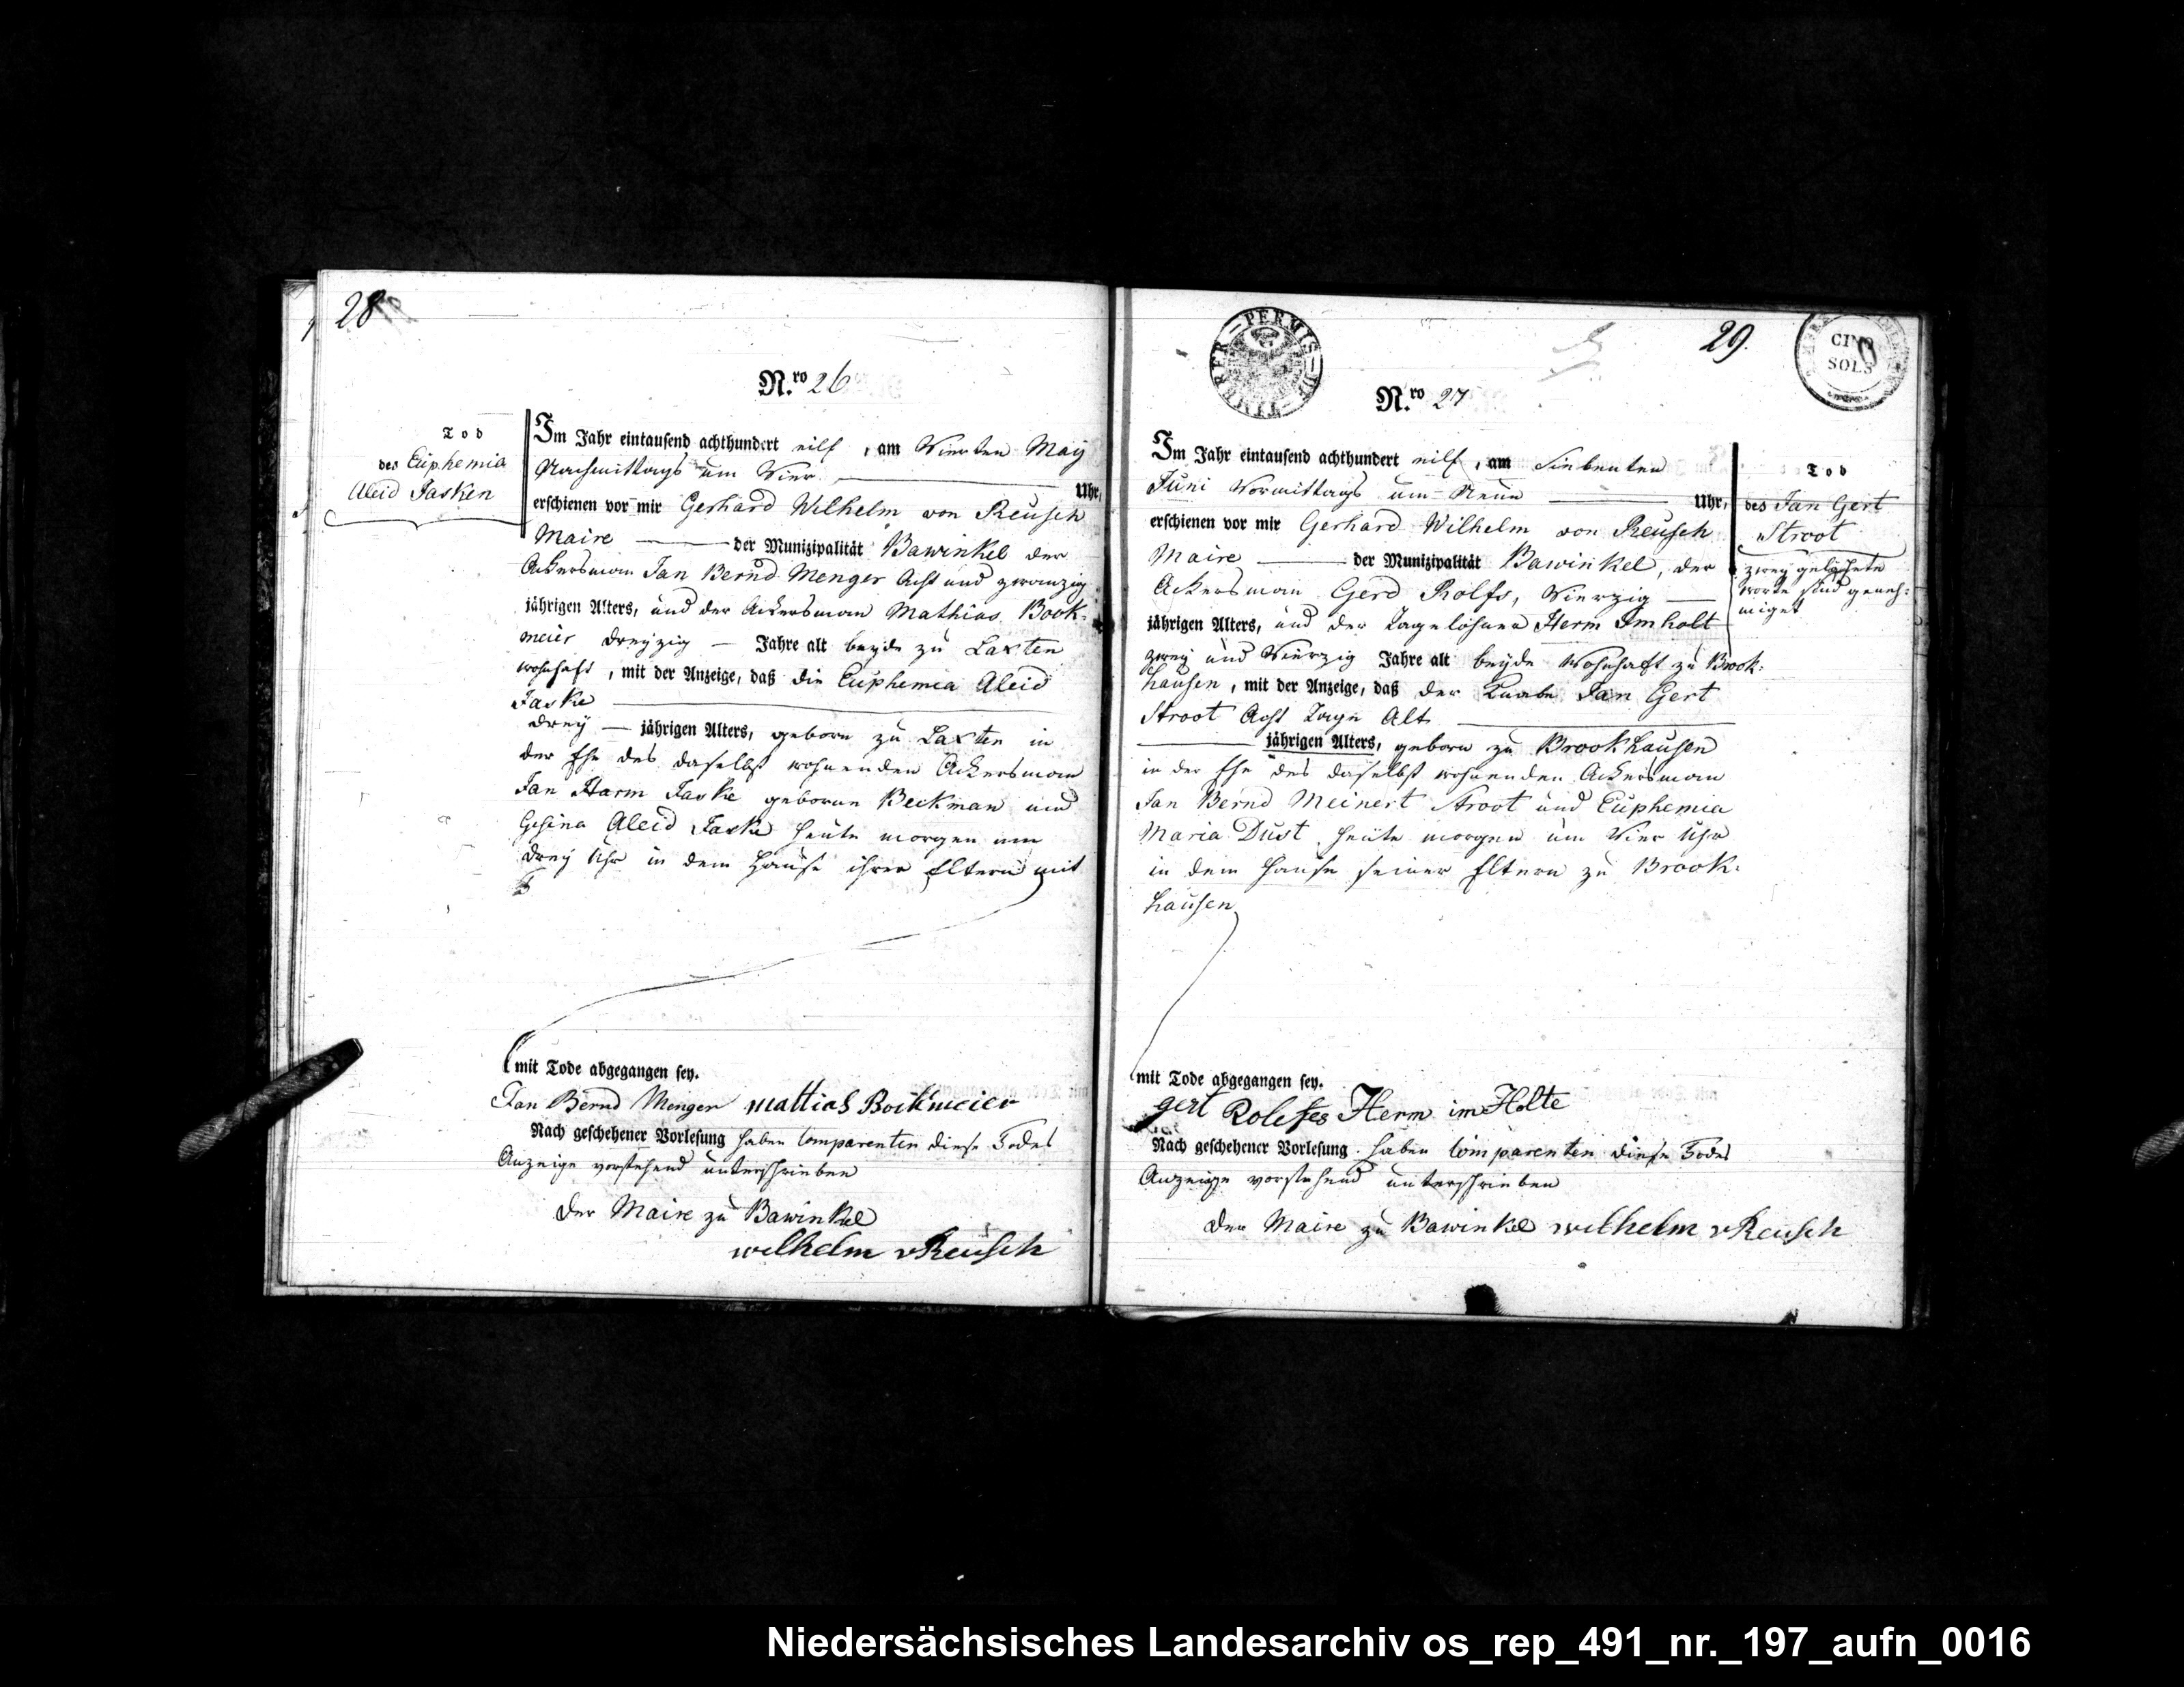 28
N.ro 26
Tod
des Euphemia
Aleid Fasken
Im Jahr eintausend achthundert eilf, am Vierten May
Nachmittags um Vier Uhr,
erschienen vor mir Gerhard Wilhelm von Reusch
Maire der Munizipalität Bawinkel der
Ackersman Jan Bernd Menger Acht und zwanzig
jährigen Alters, und der Ackersman Mathias Book-
meier dreyzig Jahre alt beyde zu Laxten
wohnhaft, mit der Anzeige, daß die Euphemia Aleid
Faske
drey jährigen Alters, geboren zu Laxten in
der Ehe des daselbst wohnenden Ackersman
Jan Harm Faske geborne Beckman und
Gesina Aleid Faske heute morgen um
drey Uhr in dem Hause ihrer Eltern mit
mit Tode abgegangen sey.
Jan Bernd Menger mattias Bockmeier
Nach geschehener Vorlesung haben Comparenten diese Todes
Anzeige vorstehend unterschrieben
Der Maire zu Bawinkel
wilhelm vReusch
PERMIS DE TIMBRER
29.
CINQ
SOLS
N.ro 27
Im Jahr eintausend achthundert eilf, am Siebenten
Juni Vormittags um Neun Uhr,
erschienen vor mir Gerhard Wilhelm von Reusch
Maire der Munizipalität Bawinkel, der
Ackersman Gerd Rolfs, Vierzig
jährigen Alters, und der Tagelöhner Herm Imholt
zwey und Vierzig Jahre alt beyde Wohnhaft zu Brook-
hausen, mit der Anzeige, daß der Knabe Jan Gert
Stroot Acht Tage Alt
jährigen Alters, geboren zu Brookhausen
in der Ehe des daselbst wohnenden Ackersman
Jan Bernd Meinert Stroot und Euphemia
Maria Dust heute morgen um Vier Uhr
in dem Hause seiner Eltern zu Brook-
hausen
mit Tode abgegangen sey.
gert Rolefes Herm im Holte
Nach geschehener Vorlesung haben Comparenten diese Todes
Anzeige vorstehend unterschrieben
Der Maire zu Bawinkel wilhelm vReusch
Tod
des Jan Gert
Stroot
zwey gelöschte
worte sind geneh-
miget
Niedersächsisches Landesarchiv os_rep_491_nr._197_aufn_0016